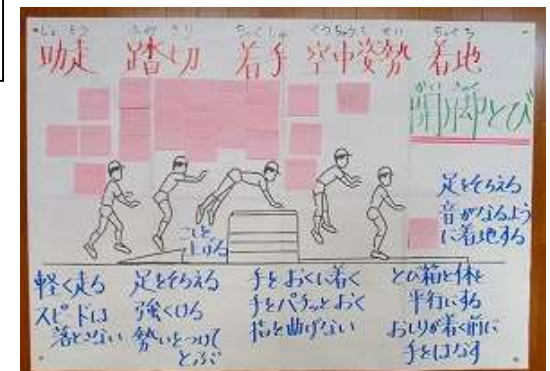 じょそう ふみきり ちゃくしゅ くうちゅうしせい ちゃくち
助走 踏切 着手 空中姿勢 着地
かいきゃく
開脚とび
足をそろえる
音がなるよう
に着地する
こしを
上げる
軽く走る
スピードは
落とさない
足をそろえる
強くける
勢いをつけて
とぶ
手をおくに着く
手をパチッとおく
指を曲げない
とび箱と体を
平行にする
おしりが着く前に
手をはなす